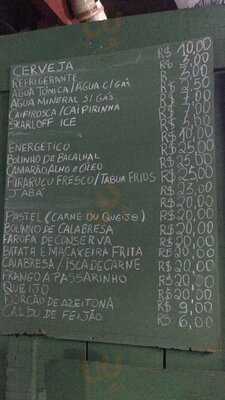 CERVEJA R$ 10,00
REFRIGERANTE
AGUA TONICA/AGUA C/GAS
AGUA MINERAL S/GAS
CAIPIROSCA/CAIPIRINHA
SKARLOFF ICE
R$ 10,00
ENERGETICO R$ 25,00
BOLINHO DE BACALHAL R$ 25,00
CAMARÃO ALHO e OLEO R$ 25,00
PIRARUCU FRESCO/TABUA FRIOS R$ 23,00
JABÁ R$ 20,00
R$ 20,00
PASTEL (CARNE OU QUEIJO) R$ 20,00
BOLINHO DE CALABRESA R$ 20,00
FAROFA DE CONSERVA R$ 20,00
BATATA E MACAXEIRA FRITA R$ 20,00
CALABRESA / ISCA DE CARNE R$ 20,00
FRANGO A PASSARINHO R$ 20,00
QUEIJO R$ 20,00
PORÇÃO DE AZEITONA R$ 9,00
CALDO DE FEIJÃO R$ 6,00